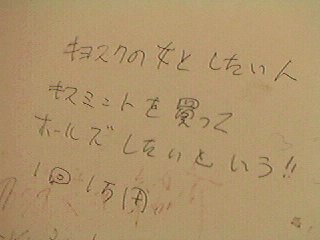 キヨスクの女としたい人
キスミントを買って
ホールズしたいという!!
1回1万円